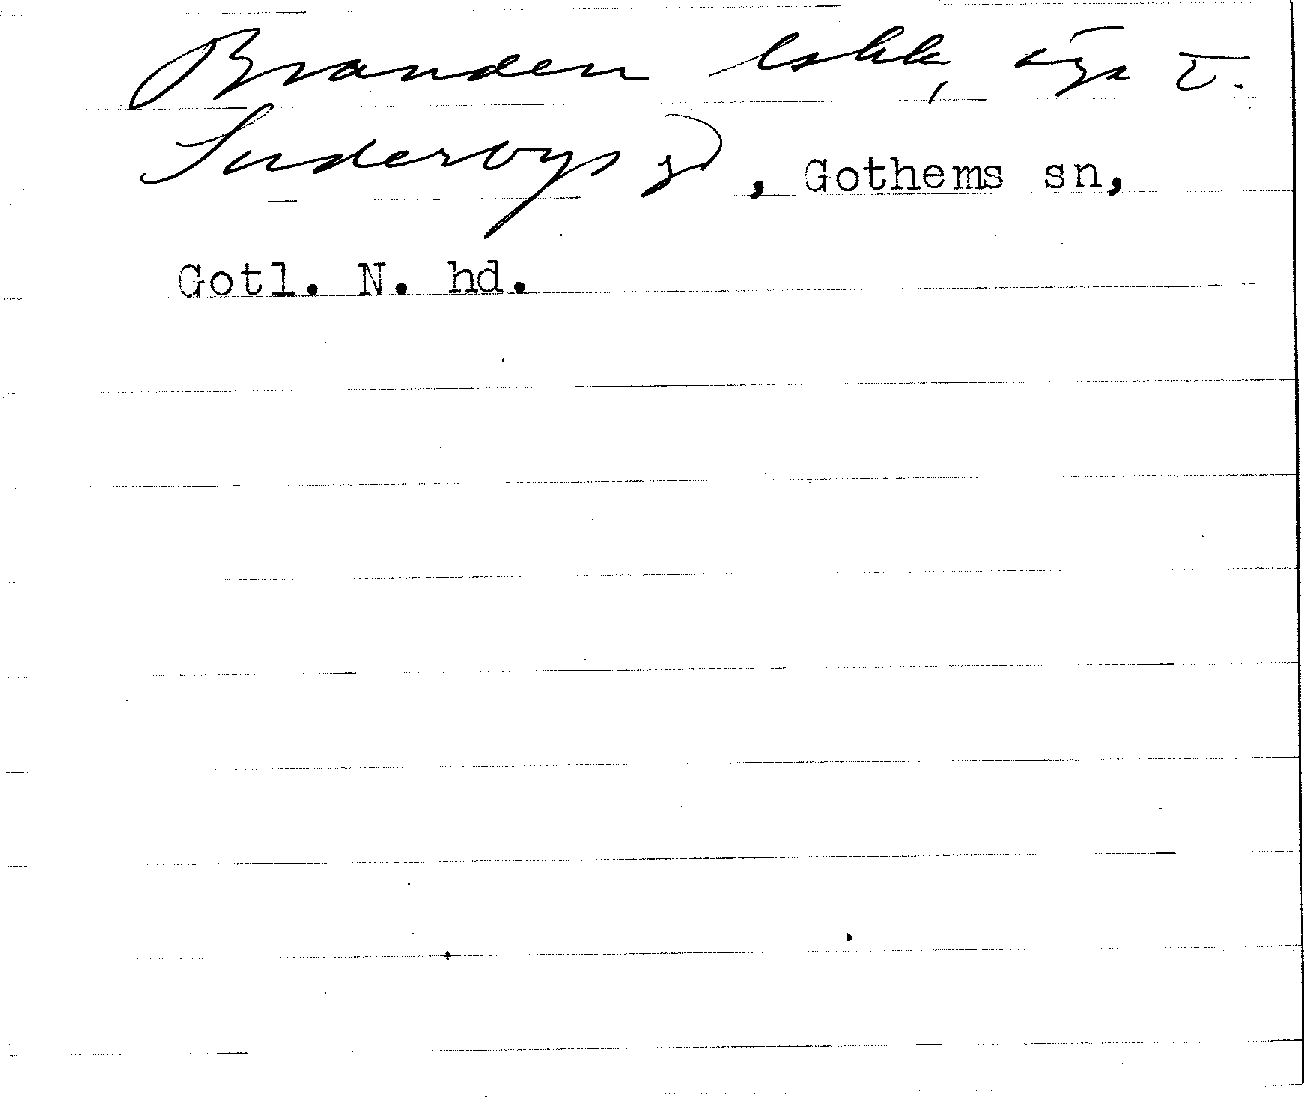 Branden äga t.
Suderbys gd, Gothems sn,
Gotl. N. hd.